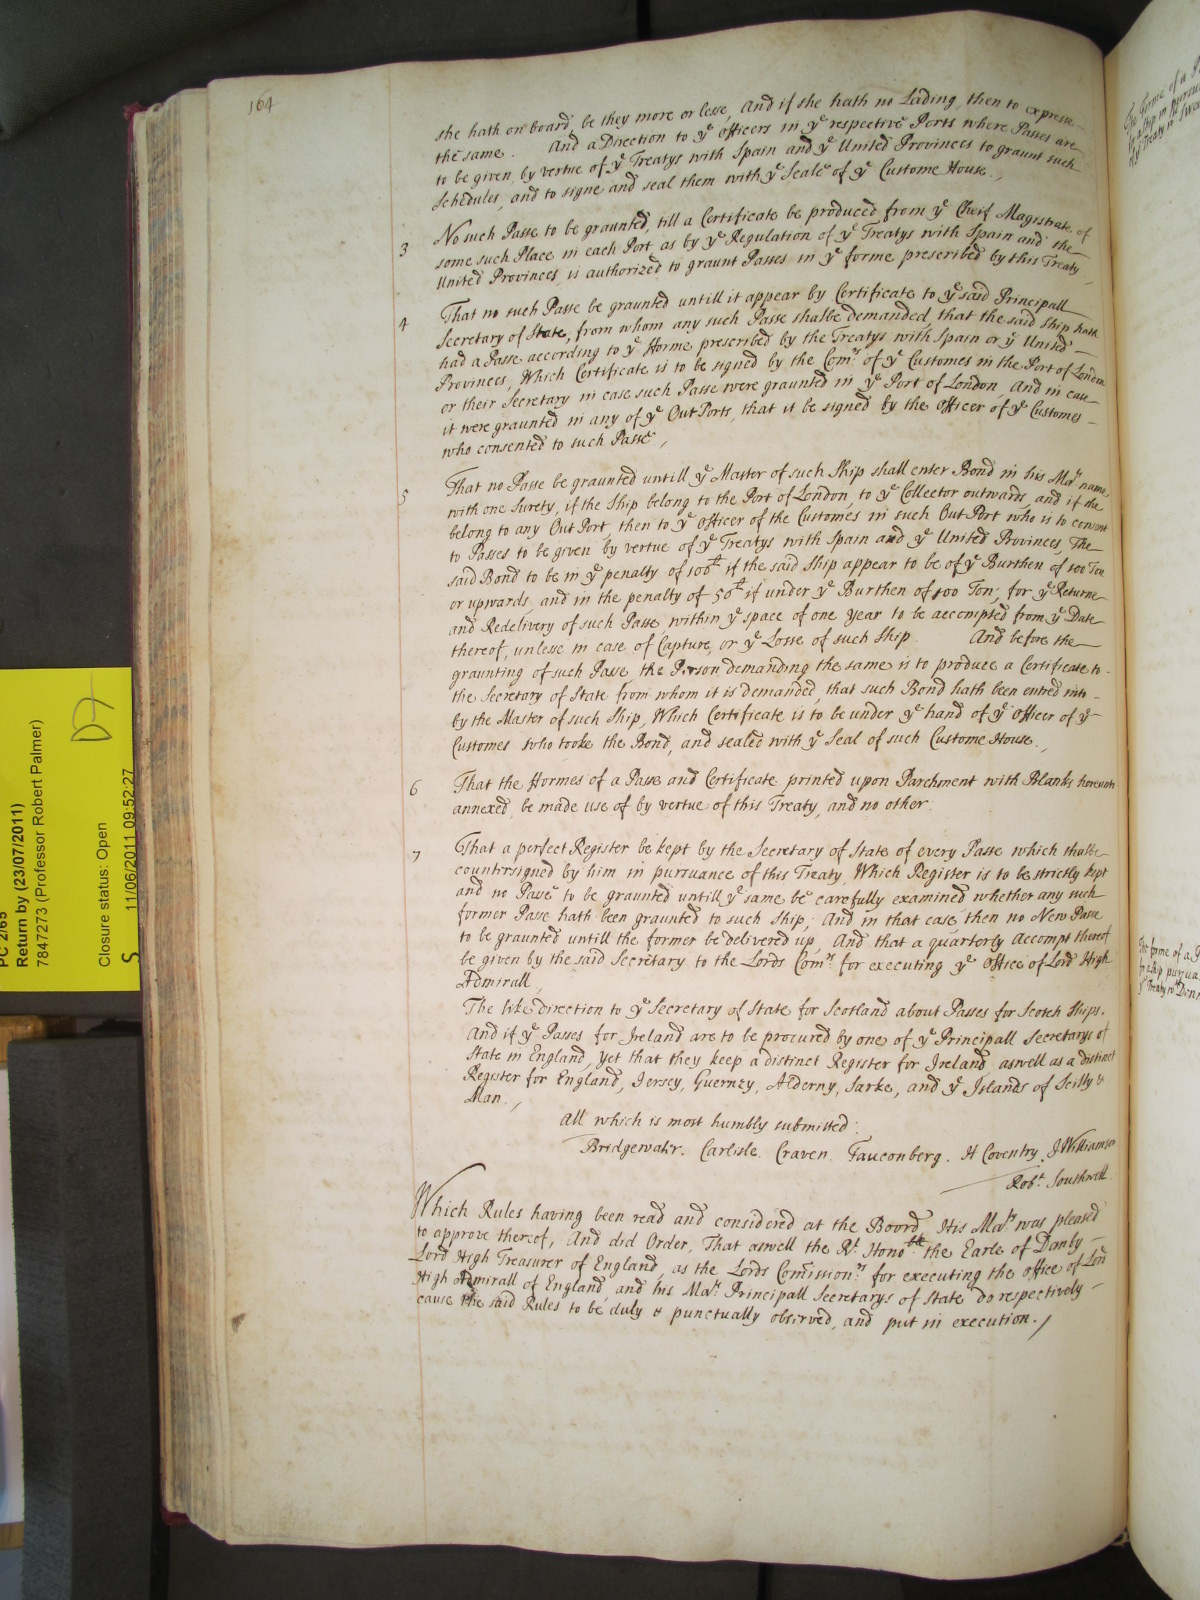 164
she hath on board, be they more or lesse, And if she hath no Lading, then to expresse
the same. And a Direction to yᵉ officers in yᵉ respective Ports where Passes are
to be given, by vertue of yᵉ Treatys with Spain and yᵉ United Provinces to graunt such
Schedules, and to signe and seal them with yᵉ Seale of yᵉ Custome House.,
3 No such Passe to be graunted, till a Certificate be produced from yᵉ Cheif Magistrate of
some such Place in each Port, as by yᵉ Regulation of yᵉ Treatys with Spain and the
United Provinces, is authorized to graunt Passes in yᵉ forme prescribed by this Treaty
4 That no such Passe be graunted untill it appear by Certificate to yᵉ said Principall
Secretary of State, from whom any such Passe shalbe demanded, that the said Ship hath
had a Passe according to yᵉ Forme prescribed by the Treatys with Spain or yᵉ United
Provinces, Which Certificate is to be signed by the Comʳˢ of yᵉ Customes in the Port of London
or their Secretary in case such Passe were graunted in yᵉ Port of London, And in case
it were graunted in any of yᵉ Out Ports, that it be signed by the Officer of yᵉ Customes
who consented to such Passe,
5 That no Passe be graunted untill yᵉ Master of such Ship shall enter Bond in his Maᵗˢ name,
with one Surety, if the Ship belong to the Port of London, to yᵉ Collector outwards, and if she
belong to any Out Port, then to yᵉ Officer of the Customes in such Out Port who is to consent
to Passes to be given by vertue of yᵉ Treatys with Spain and yᵉ United Provinces, The
said Bond to be in yᵉ penalty of 100ˡ if the said Ship appear to be of yᵉ Burthen of 100 Ton
or upwards, and in the penalty of 50ˡ if under yᵉ Burthen of 100 Ton; for yᵉ Returne
and Redelivery of such Passe within yᵉ space of one Year to be accompted from yᵉ Date
thereof, unlesse in case of Capture, or yᵉ Losse of such Ship. And before the
graunting of such Passe, the Person demanding the same is to produce a Certificate to
the Secretary of State from whom it is demanded, that such Bond hath been entred into
by the Master of such Ship, Which Certificate is to be under yᵉ hand of yᵉ Officer of yᵉ
Customes who tooke the Bond, and sealed with yᵉ Seal of such Custome House.,
6 That the Formes of a Passe and Certificate printed upon Parchment with Blanks hereunto
annexed, be made use of by vertue of this Treaty, and no other.
7 That a perfect Register be kept by the Secretary of State of every Passe which shalbe
countersigned by him in pursuance of this Treaty, Which Register is to be strictly kept
and no Passe to be graunted untill yᵉ same be carefully examined whether any such
former Passe hath been graunted to such Ship; And in that case then no New Passe
to be graunted untill the former be delivered up, And that a quarterly Accompt thereof
be given by the said Secretary to the Lords Comʳˢ for executing yᵉ Office of Lord High
Admirall,
The like direction to yᵉ Secretary of State for Scotland about Passes for Scotch Ships.
And if yᵉ Passes for Ireland are to be procured by one of yᵉ Principall Secretarys of
State in England, yet that they keep a distinct Register for Ireland, aswell as a distinct
Register for England, Jersey, Guernzy, Alderny, Sarke, and yᵉ Islands of Scilly &
Man.,
All which is most humbly submitted.
Bridgewatʳ. Carlisle. Craven. Fauconberg. H Coventry. J Williamson
Robᵗ. Southwell.
Which Rules having been read and considered at the Board, His Maᵗʸ was pleased
to approve thereof, And did Order, That aswell the Rᵗ. Honoᵇˡᵉ the Earle of Danby
Lord High Treasurer of England, as the Lords Comissionʳˢ for executing the office of Lord
High Admirall of England, and his Maᵗˢ Principall Secretarys of State do respectively
cause the said Rules to be duly & punctually observed, and put in execution./
PC 2/65
Return by (23/07/2011)
7847273 (Professor Robert Palmer)
Closure status: Open
S 11/06/2011 09:52:27
The forme of a
The forme of a